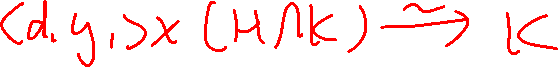 <d, y, > x (H∩K) ⥲ K